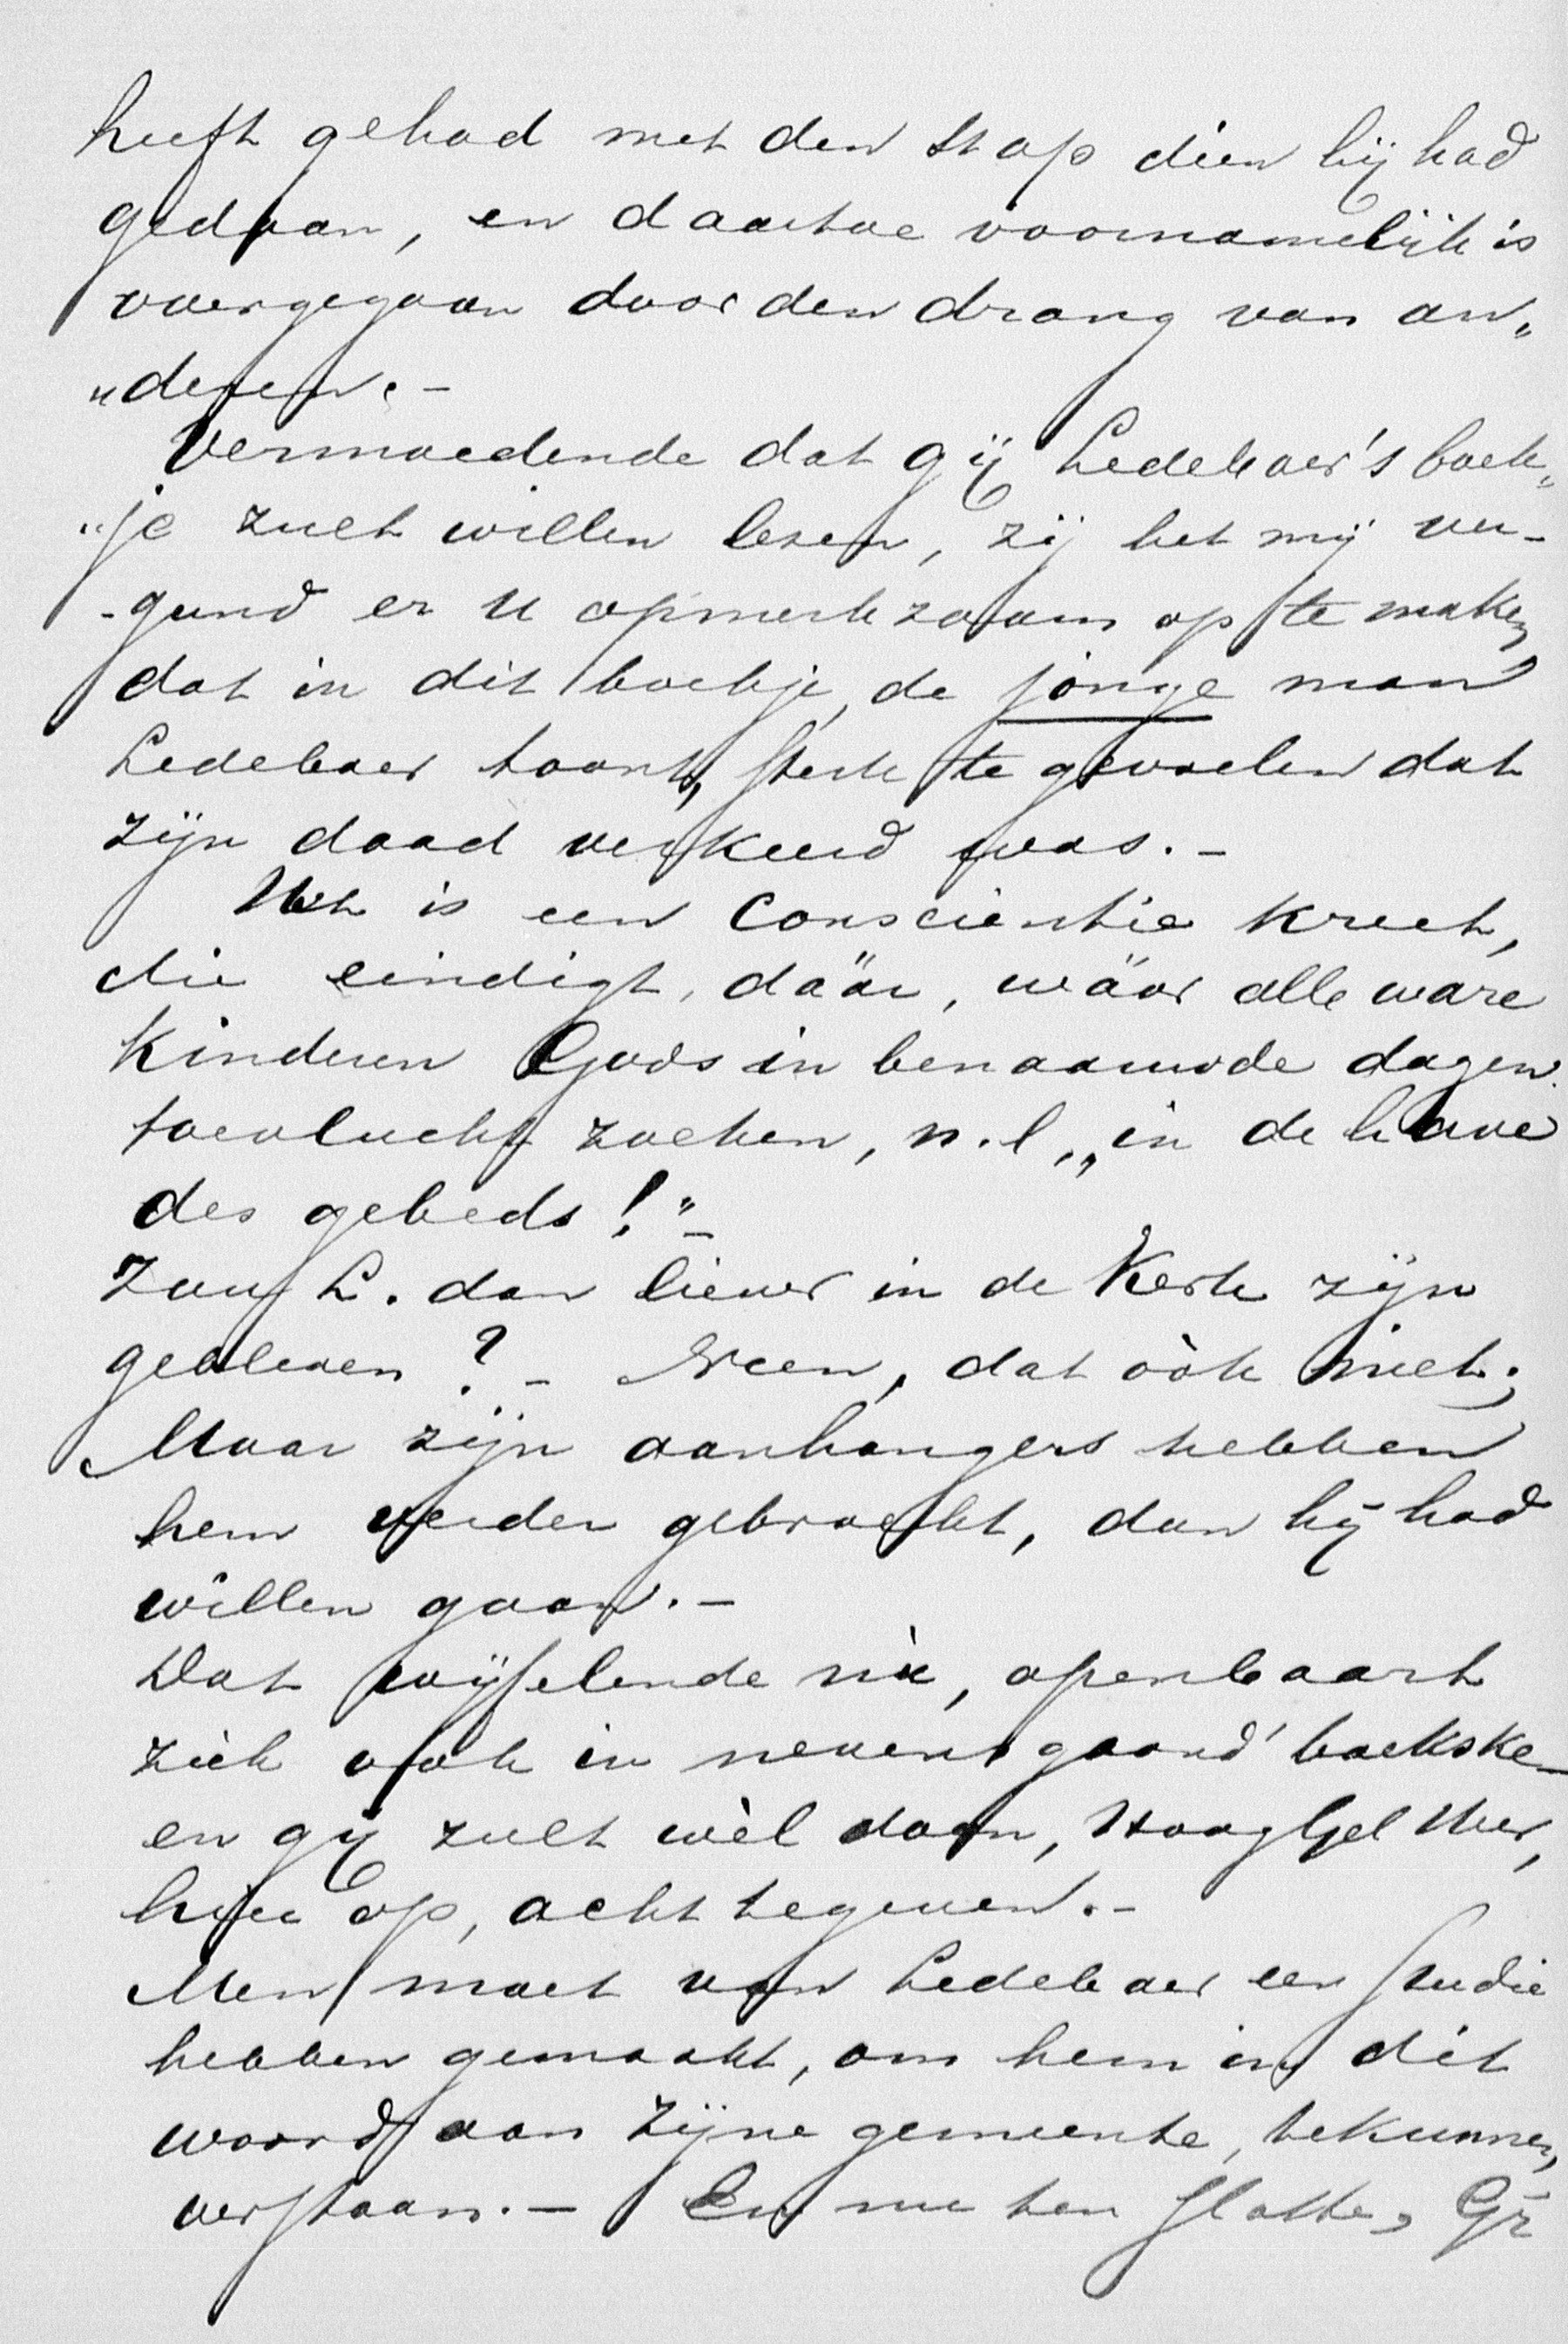 heeft gehad met den stap dien hij had
gedaan, en daartoe voornamelijk is
overgegaan door den drang van an„
„deren. –
Vermoedende dat gij Ledeboer's boek„
„je zult willen lezen, zij het mij ver-
-gund er U opmerkzaam op te maken,
dat in dit boekje, de jonge man
Ledeboer toont, sterk te gevoelen dat
zijn daad verkeerd was. –
Het is een Conscientie kreet,
die eindigt, däär, wäär alle ware
Kinderen Gods in benaauwde dagen
toevlucht zoeken, n.l. „in de have
des gebeds!" –
Zou L. dan liever in de Kerk zijn
gebleven? – Neen, dat òòk niet;
Maar zijn aanhangers hebben
hem verder gebracht, dan hij had
willen gaan. –
Dat twijfelende nù, openbaart
zich ook in nevensgaand' boekske –
en gij zult wèl doen, HoogGel Heer,
hier op, acht tegeven. –
Men moet van Ledeboer een studie
hebben gemaakt, om hem in dit
woord aan zijne gemeente, tekunnen,
verstaan. – En nu ten slotte, Gr